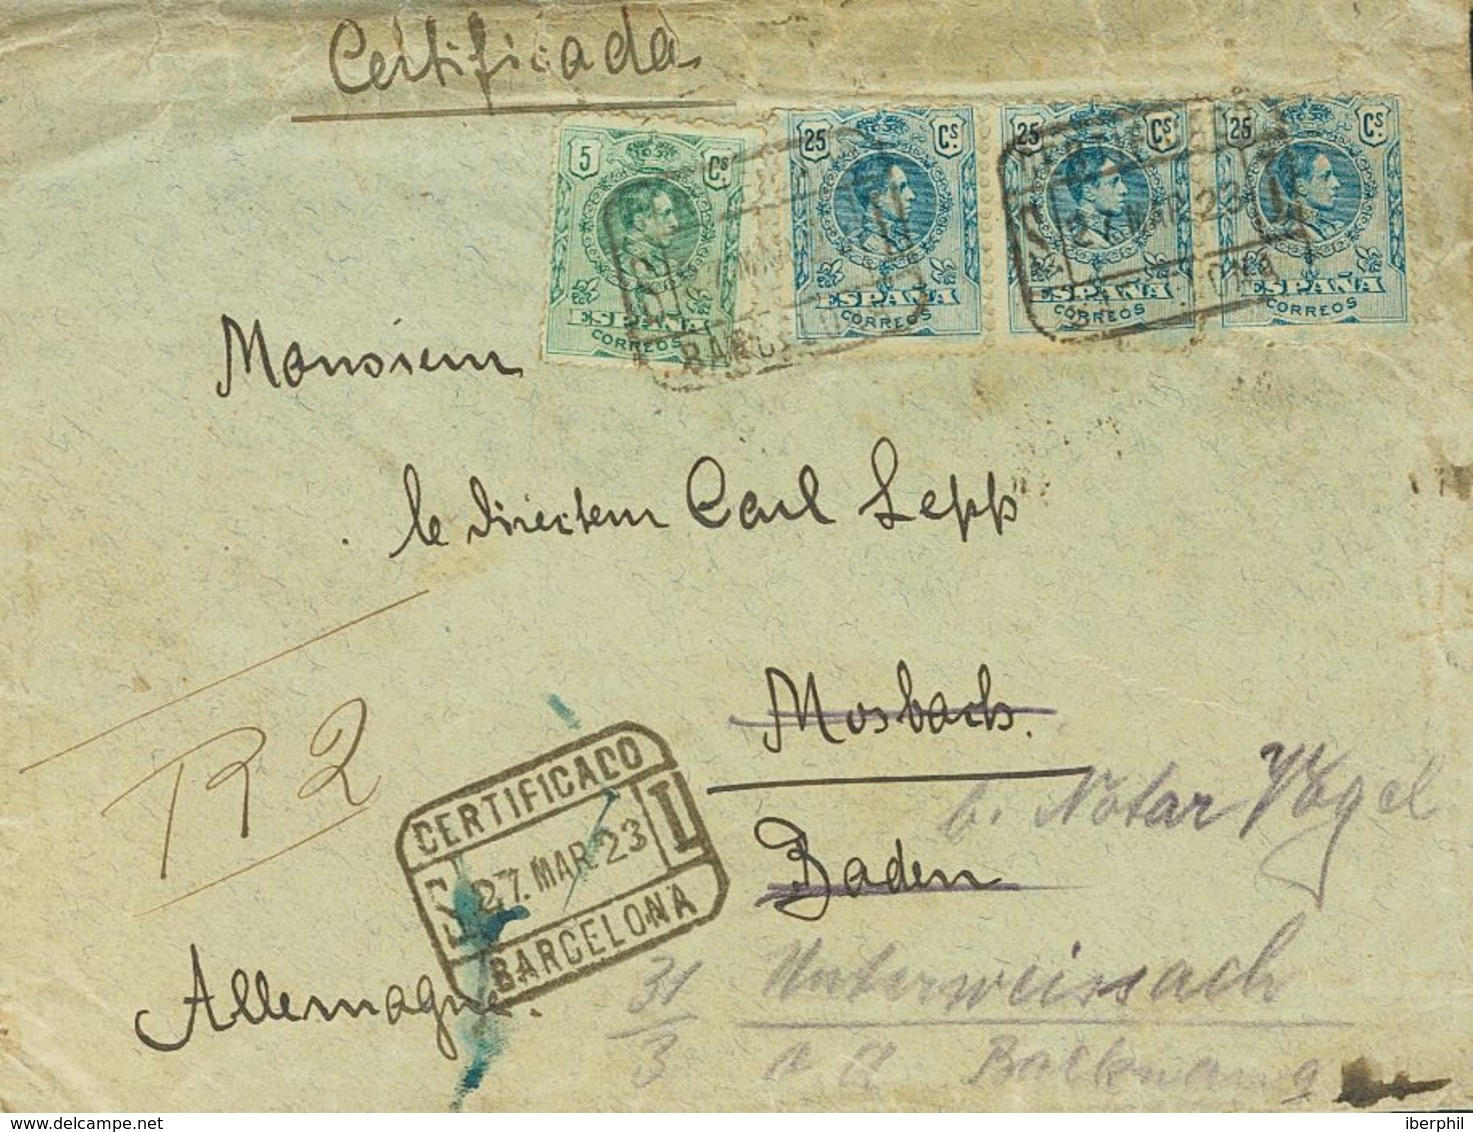 Certificada
5 Cs
25 Cs.
25 Cs.
25 Cs.
27 MAR 23
ESPAÑA
CORREOS
ESPAÑA
CORREOS
ESPAÑA
CORREOS
ESPAÑA
CORREOS
Monsieur
le directeur Carl Lepp
Mosbach.
R 2
b. Notar Vogel
CERTIFICADO
27. MAR. 23 I
BARCELONA
Baden
Allemagne.
31/3
Unterweissach
Backnang
iberphil